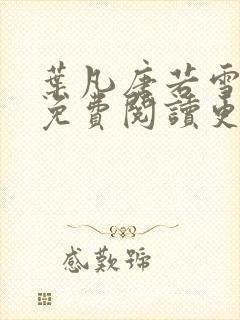 葉凡唐若雪
免費閱讀史
感歎號